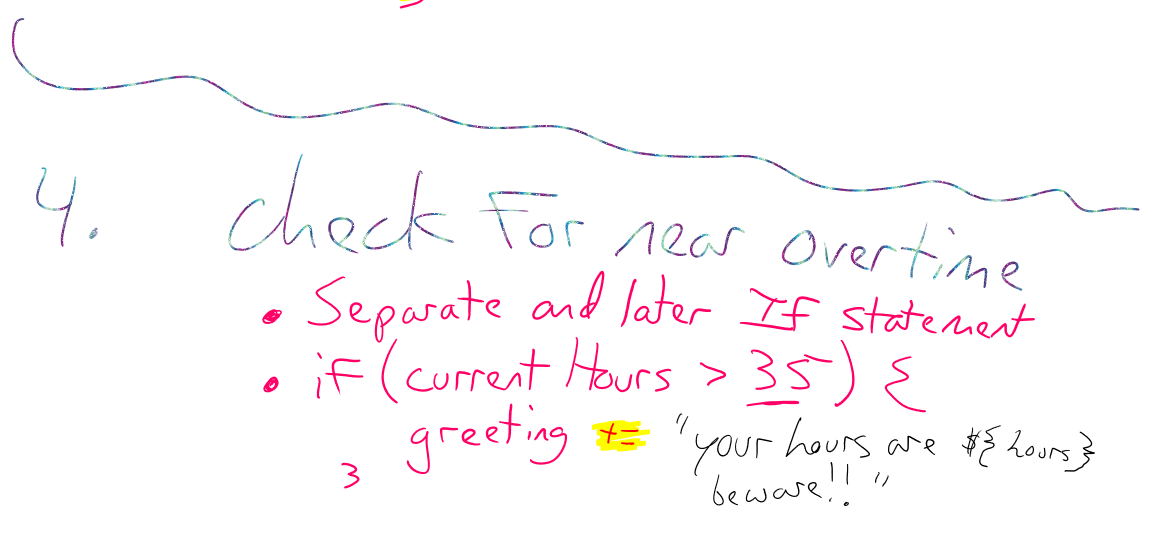 4. Check For near overtime
• Separate and later If statement
• if (current Hours > 35) {
greeting += "your hours are ${hours}
beware!!"
}